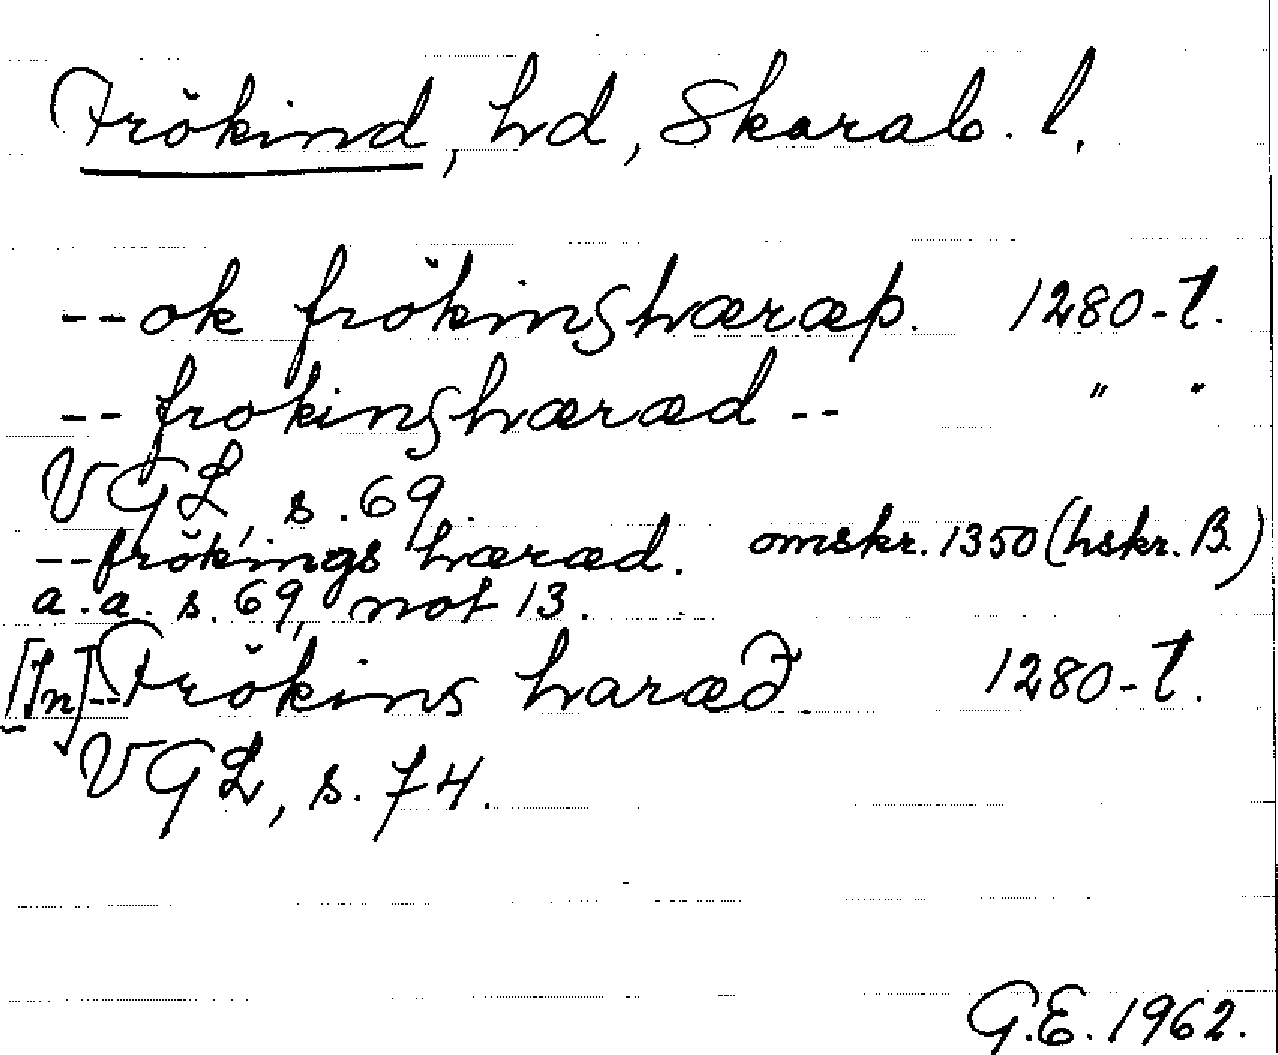 Frökind, hd, Skarab. l.
-- ok frökingshæræþ. 1280-t.
-- frokingshæræd -- " "
VGL, s. 69.
-- frökings hæræd. omskr. 1350 (hskr. B.)
a. a. s. 69, not 13.
[In] -- Frökins haræð. 1280-t.
VGL, s. 74.
G.E. 1962.